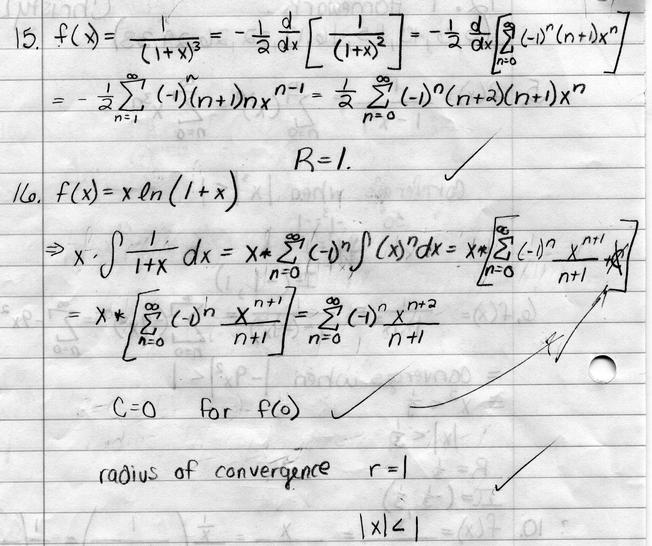 15. f(x) = 1/(1+x)³ = -1/2 d/dx [1/(1+x)²] = -1/2 d/dx [∞Σn=0 (-1)ⁿ(n+1)xⁿ]
= -1/2 ∞Σn=1 (-1)ⁿ(n+1)nxⁿ⁻¹ = 1/2 ∞Σn=0 (-1)ⁿ(n+2)(n+1)xⁿ
R=1. ✓
16. f(x) = x ln(1+x)
⇒ x · ∫ 1/(1+x) dx = x* ∞Σn=0 (-1)ⁿ ∫(x)ⁿdx = x* [∞Σn=0 (-1)ⁿ xⁿ⁺¹/(n+1) + C]
= x* [∞Σn=0 (-1)ⁿ xⁿ⁺¹/(n+1)] = ∞Σn=0 (-1)ⁿ xⁿ⁺²/(n+1)
C=0 for f(0) ✓
radius of convergence r=1 ✓
|x|<1